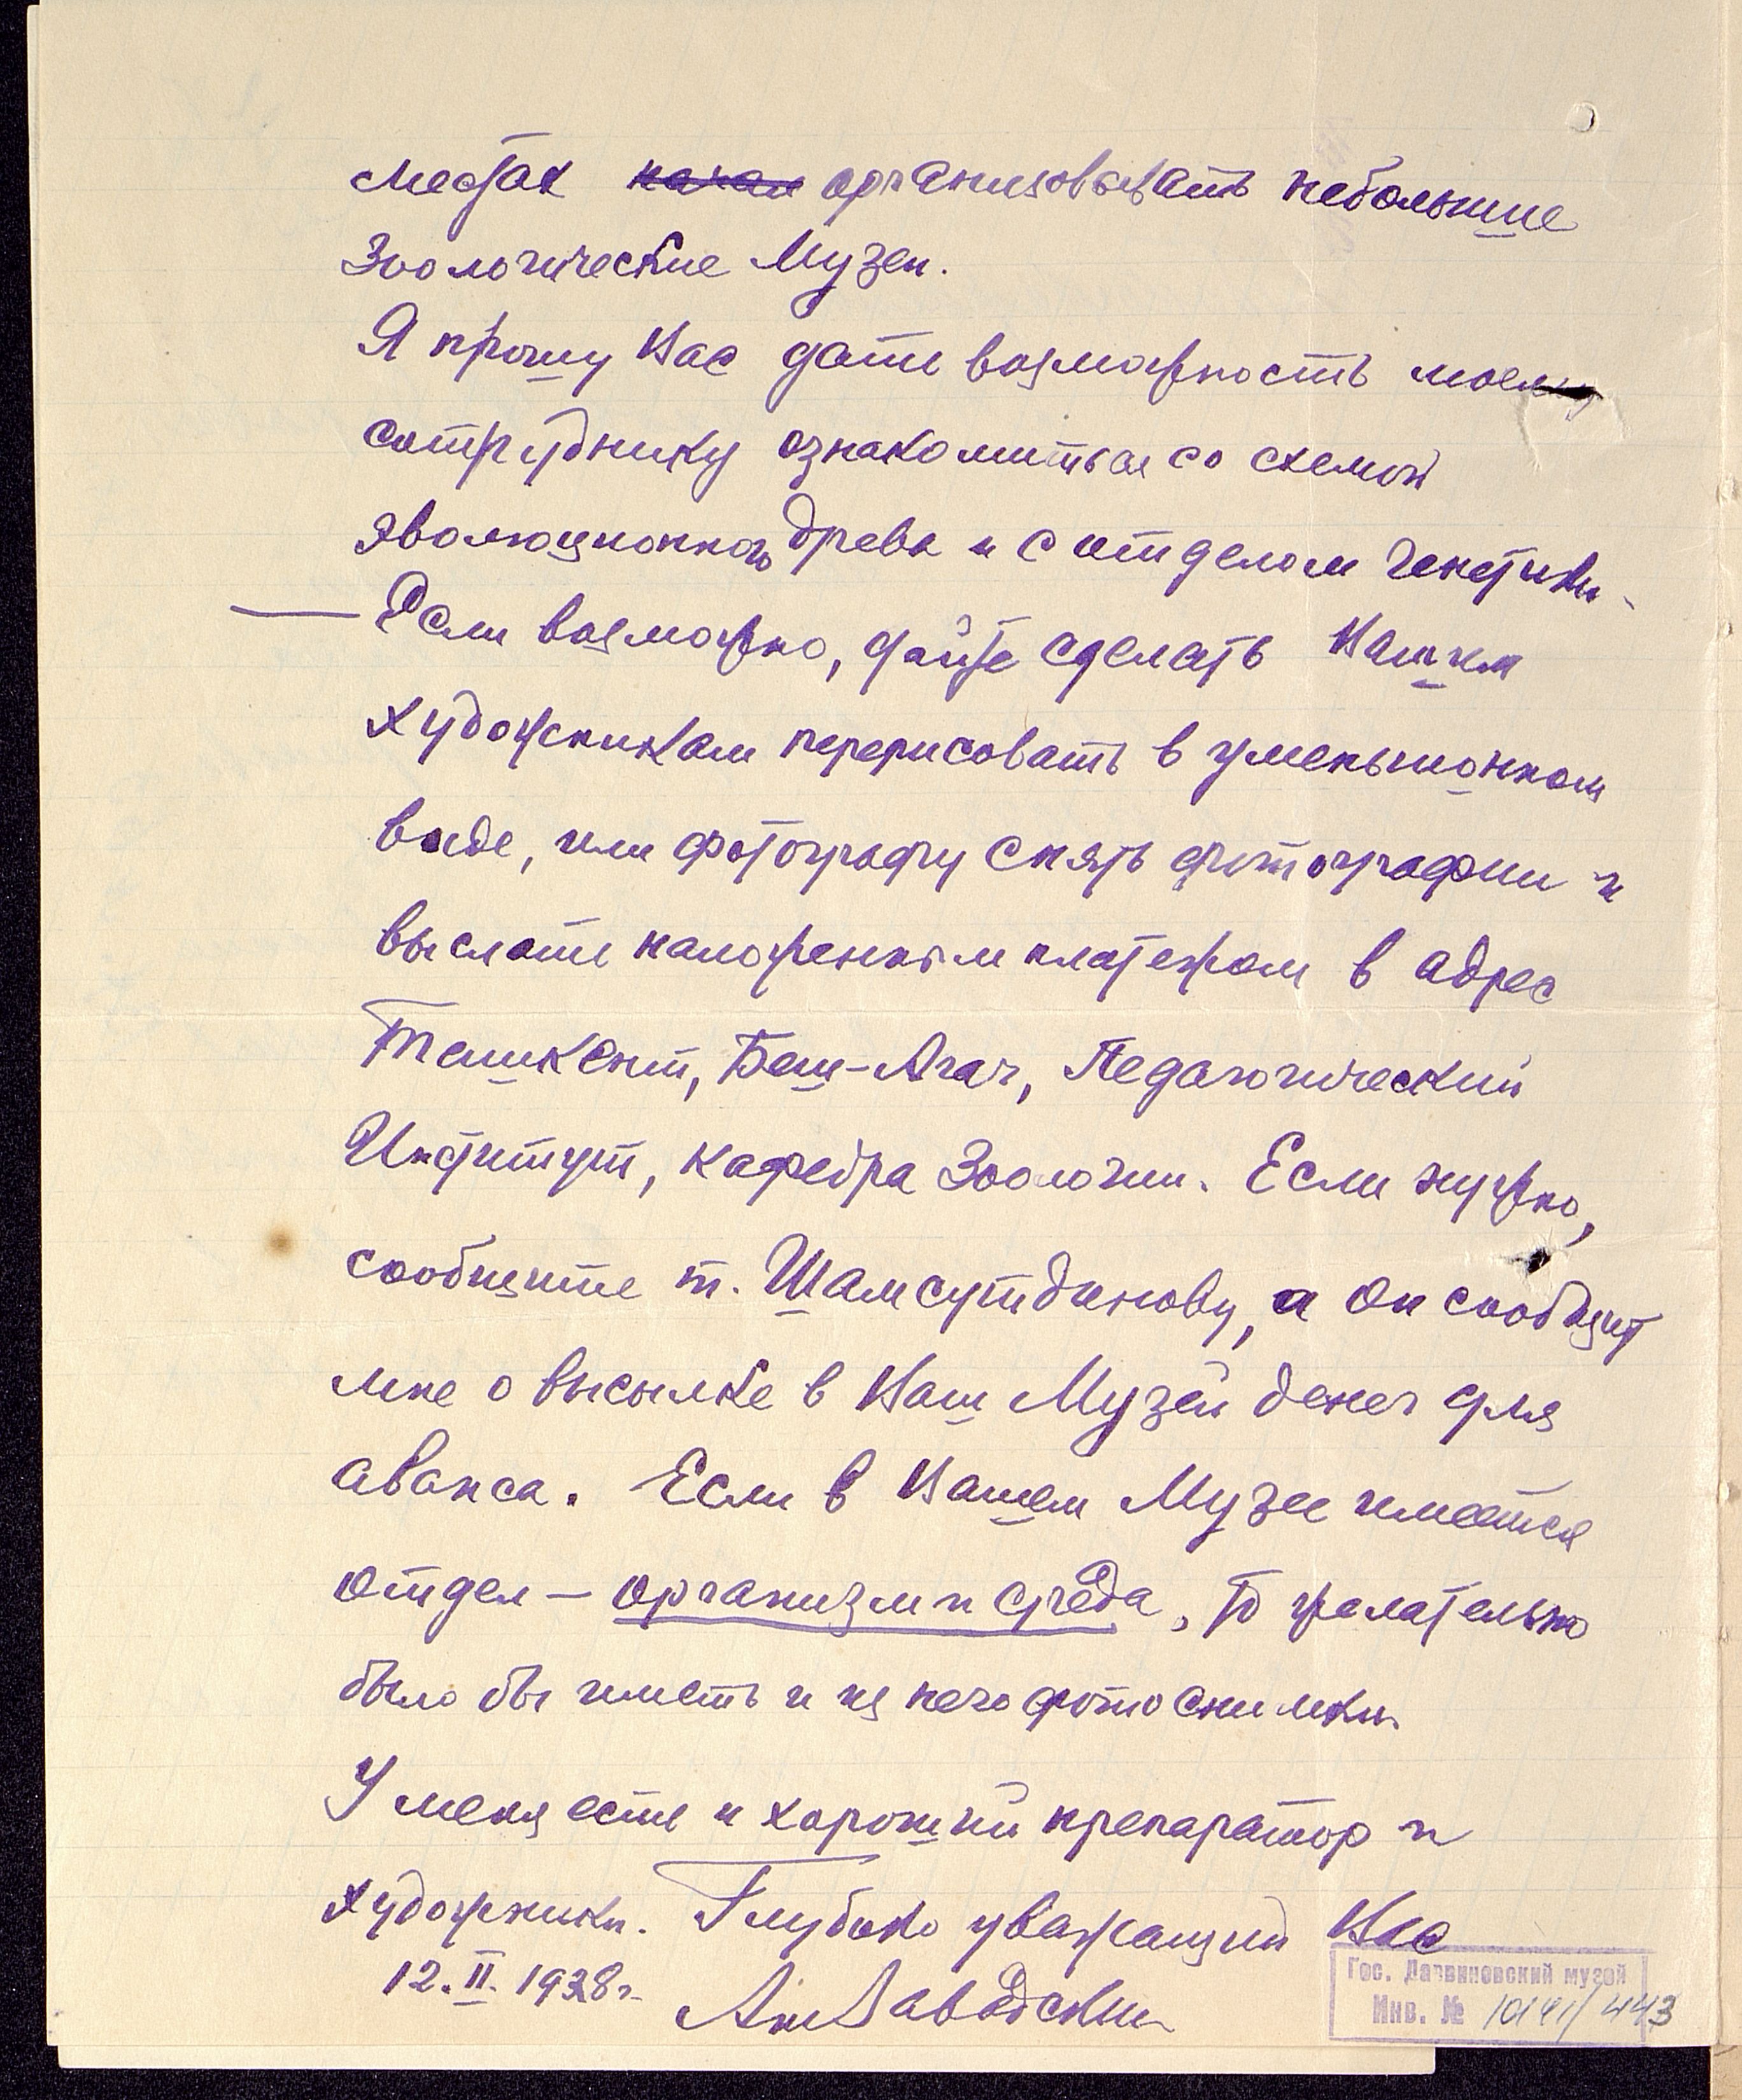 местах начал организовывать небольшие
Зоологические Музеи.
Я прошу Вас дать возможность моему
сотруднику ознакомиться со схемой
эволюционного древа и с отделом генетики.
— Если возможно, дайте сделать Вашим
художникам перерисовать в уменьшонном
виде, или фотографу снять фотографии и
выслать наложенным платежом в адрес
Ташкент, Беш-Агач, Педагогический
Институт, кафедра Зоологии. Если нужно,
сообщите т. Шамсутдинову, а он сообщит
мне о высылке в Ваш Музей денег для
аванса. Если в Вашем Музее имеется
отдел — организм и среда, то желательно
было бы иметь и из него фотоснимки.
У меня есть и хороший препаратор и
художники. Глубоко уважающий Вас
12.II.1938 г.
Гос. Дарвиновский музей
Инв. № 10141/443